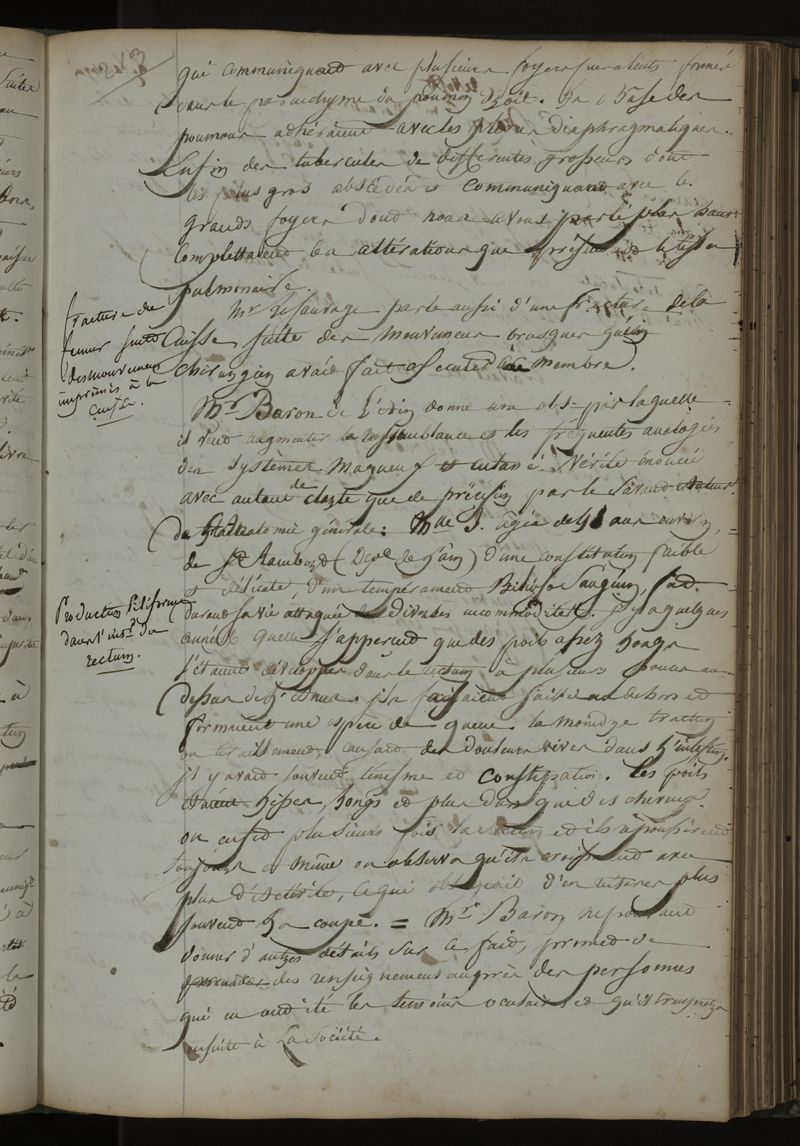 qui communiquaient avec plusieurs foyers purulents formés
dans le parenchyme du poumon droit. La base des
poumons adhéraient avec les plèvres diaphragmatiques.
Enfin des tubercules de differentes grosseurs dont
les plus gros abscédés et communiquant avec les
grands foyers dont nous avons parlé plus haut
complettaient les altérations que présentait le tissu
pulmonaire.
fracture du
femur suite
des mouvemens
imprimés à la
cuisse.
Mr parle aussi d'une fracture de la
cuisse suite des mouvemens brusques qu'un
chirurgien avait fait exécuter à ce membre.
Mr Baron de donne une obs. par laquelle
il veut augmenter la ressemblance et les fréquentes analogies
des systèmes muqueux et cutané. Vérité énoncée
avec autant de clarté que de précision par le savant auteur
de l'Anatomie générale: Mlle S. âgée de 41 ans environ,
de St Rambert (Dept de l'ain) d'une constitution faible
et délicate, d'un temperament Bilioso Sanguin, fut
durant sa vie attaquée de diverses incommodités. Il y a quelques
Productions Piliformes
dans l'int.n du
rectum.
années qu'elle s'apperçut que des poils assez longs
s'étaient développés dans le rectum à plusieurs pouces au
dessus de l'anus. ils faisaient saillie au dehors et
formaient une espèce de queue la moindre traction
ou tiraillement, causait des douleurs vives dans l'intestin.
il y avait souvent tenesme et constipation. Les poils
étaient lisses, longs et plus durs que des cheveux.
on en fit plusieurs fois la section et ils repoussèrent
toujours et même on observa qu'ils croissaient avec
plus d'activité, ce qui obligeait d'en réiterer plus
souvent la coupe. = Mr Baron ne pouvant
donner d'autres détails sur ce fait, promet de
demander des renseignemens auprès des personnes
qui en ont été les temoins oculaires et qu'il transmettra
ensuite à La Société.